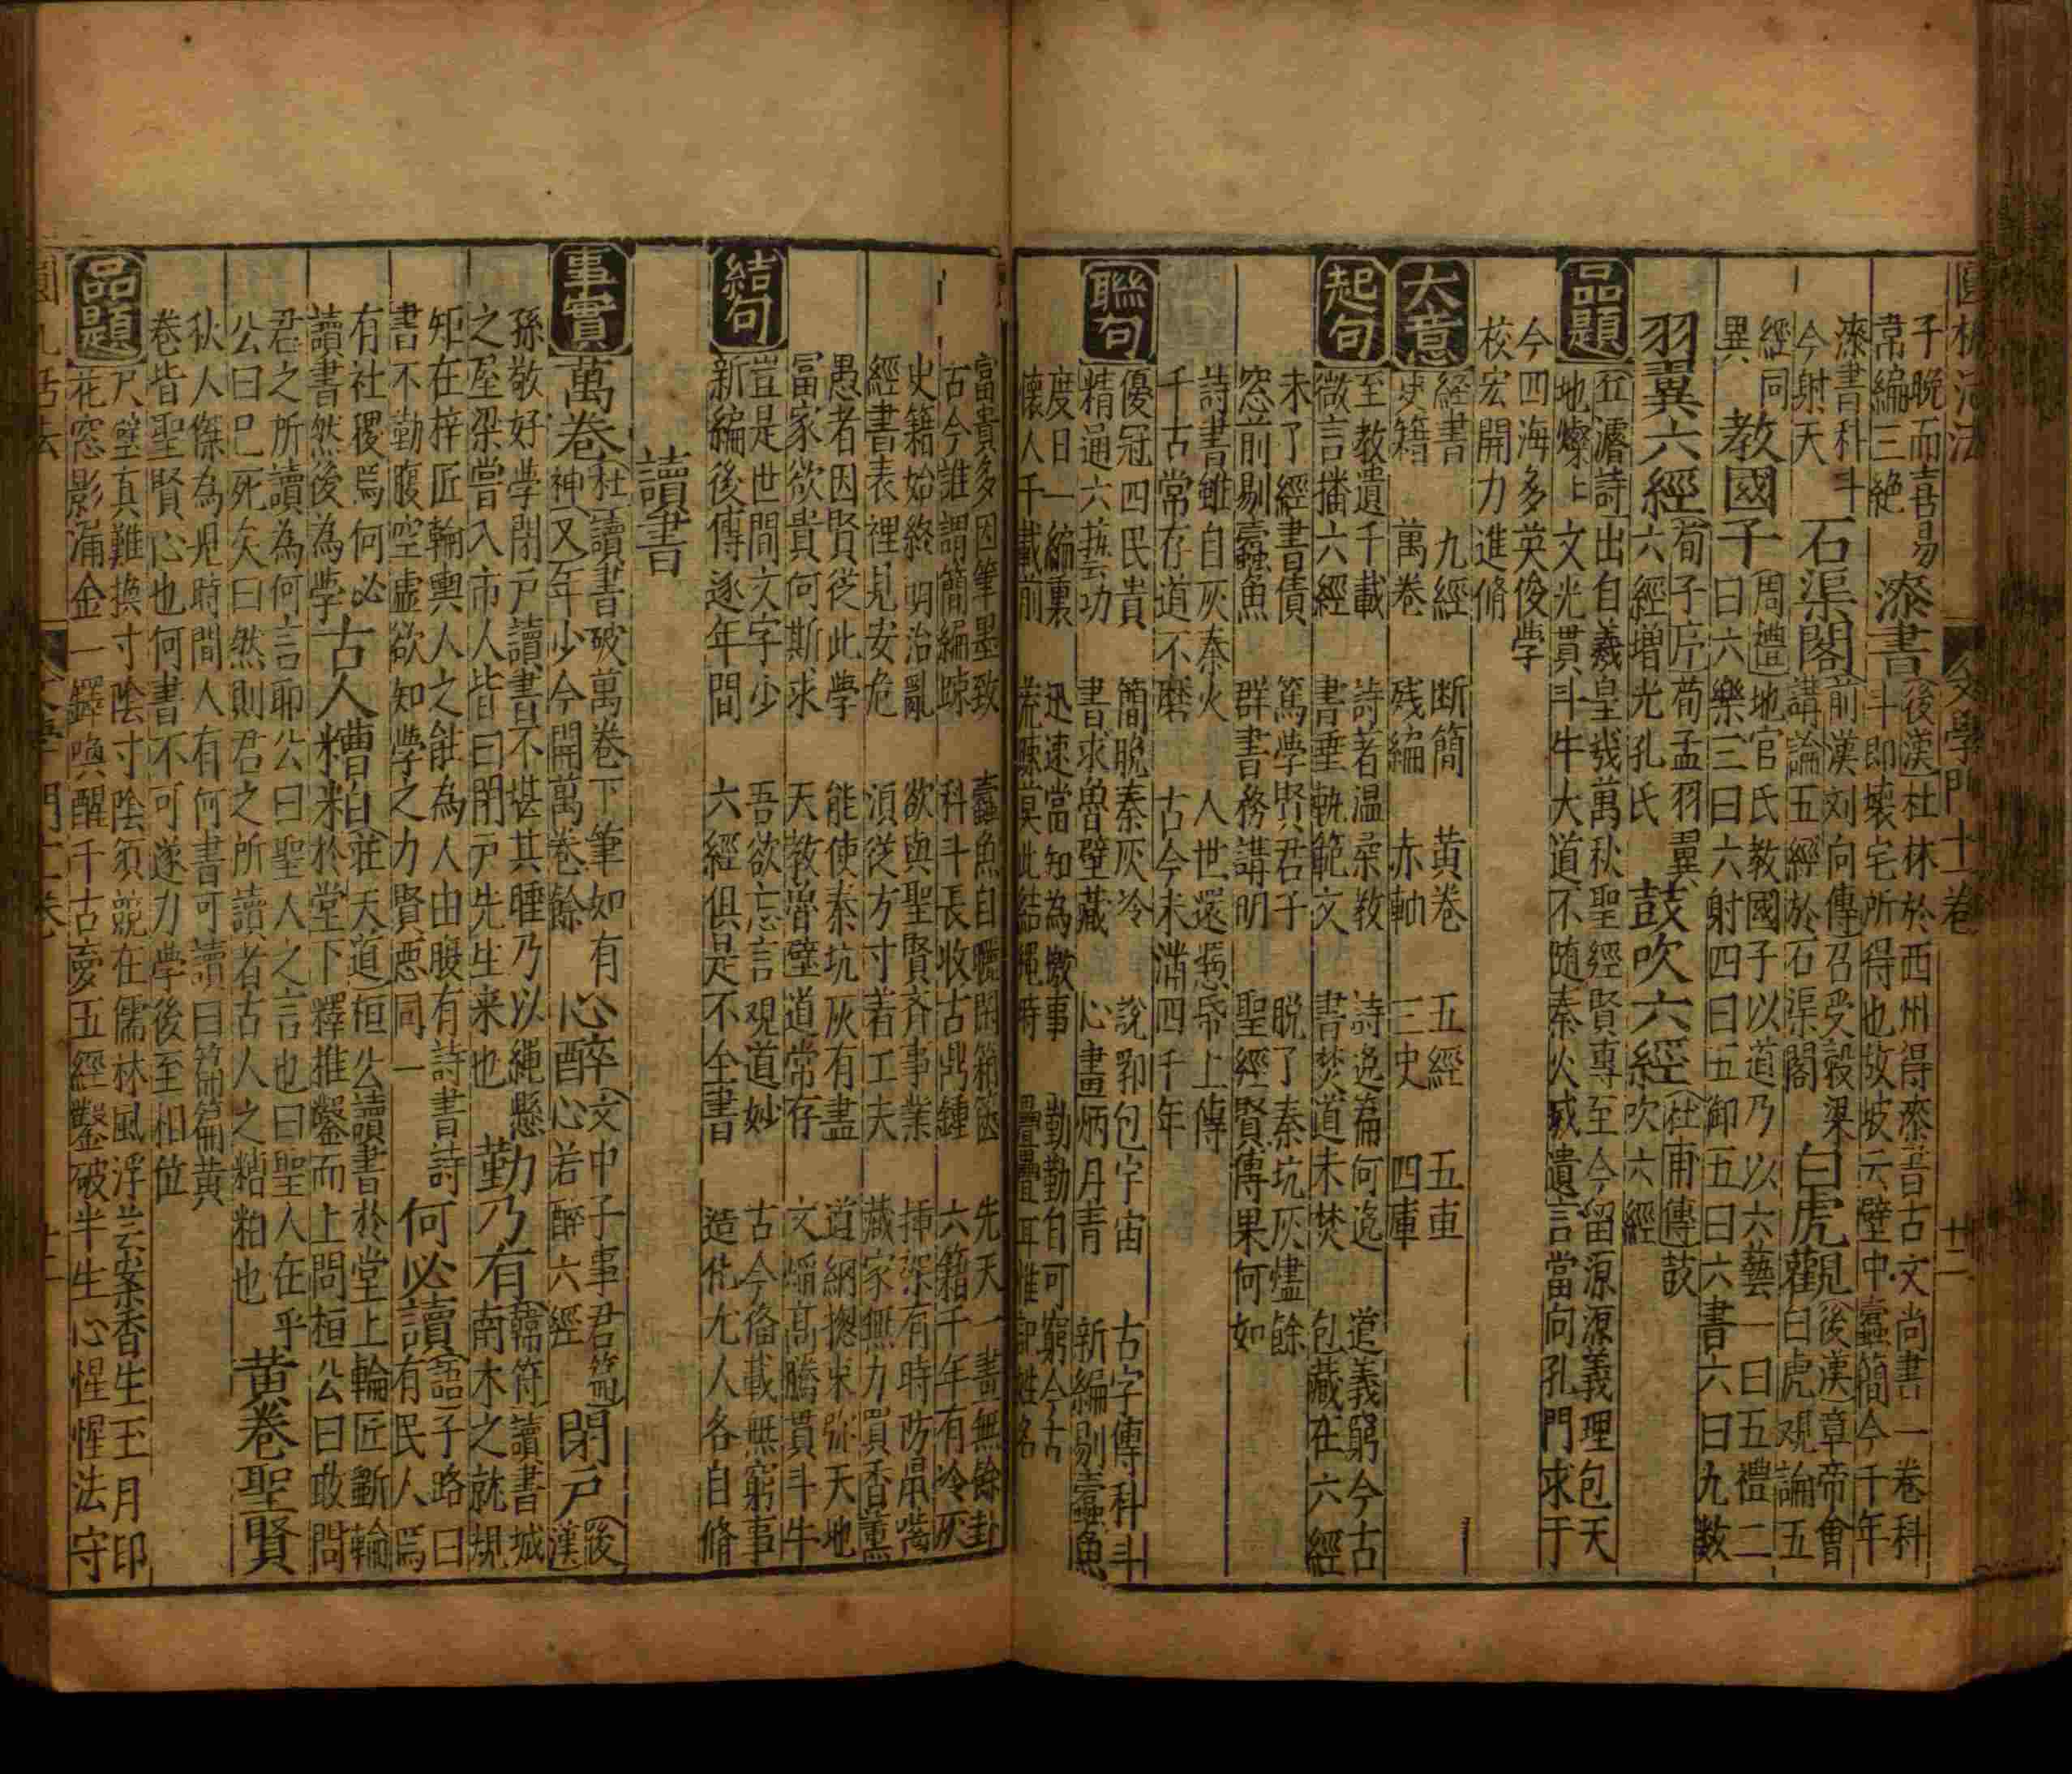 圓機活法 文學門十一卷 十二
子晚而喜易
韋編三絕
漆書
後漢杜林於西州得漆書古文尚書一卷科
斗即壞宅所得也故坡云壁中蠹簡今千年
漆書科斗
今射天
石渠閣
前漢刘向傳召受穀梁
講論五經於石渠閣
白虎觀
後漢章帝會
白虎观論五
經同
異
教國子
周禮地官氏教國子以道乃以六藝一曰五禮二
曰六樂三曰六射四曰五御五曰六書六曰九数
羽翼六經
荀子序荀孟羽翼
六經增光孔氏
鼓吹六經
杜甫傳鼓
吹六經
品題
五濬詩出自羲皇幾萬秋聖經賢專至今留源源義理包天
地燦上文光貫斗牛大道不随秦火滅遺言當向孔門求于
今四海多英俊學
校宏開力進脩
大意
経書 九經 断簡 黄卷 五經 五車
史籍 萬卷 残編 赤軸 三史 四庫
起句
至教遺千載 詩著温柔教 詩逸篇何逸 道義窮今古
微言播六經 書垂軌範文 書焚道未焚 包藏在六經
未了經書債 篤學贤君子 脱了秦坑灰燼餘
窓前剔蠹魚 群書務講明 聖經賢傳果何如
詩書雖自灰秦火 人世還慿帋上傳
千古常存道不磨 古今未滿四千年
聯句
優冠四民貴 簡脱秦灰冷 說郛包宇宙 古字傳科斗
精通六藝功 書求魯壁藏 心畫炳丹青 新編剔蠹魚
度日一編裏 迅速當知為檄事 勤勤自可窮今古
懐人千載前 荒疎莫此結繩時 疊疊耳惟記姓名
富貴多因筆墨致 蠹魚自聽閑箱篋 先天一畫無餘卦
古今誰謂簡編踈 科斗長收古鼎鍾 六籍千年有冷灰
史籍始終明治亂 欲與聖賢斉事業 揷架有時防鼠嚙
經書表裡見安危 須從方寸着工夫 藏家無力買香薰
愚者因賢從此學 能使秦坑灰有盡 道綱揔束弥天地
冨家欲貴何斯求 天教魯壁道常存 文熖髙騰貫斗牛
結句
豈是世間文字少 吾欲忘言观道妙 古今俻載無窮事
新編後傅逐年間 六經俱是不全書 造化尤人各自脩
讀書
事實
萬卷
杜讀書破萬卷下筆如有
神又年少今開萬卷餘
心醉
文中子事君篇
心若醉六經
閉戸
後
漢
孫敬好學閉戸讀書不堪其睡乃以繩懸
之屋梁嘗入市人皆曰閉戸先生来也
勤乃有
韓符讀書城
南木之就規
矩在梓匠輪輿人之能為人由腹有詩書詩
書不勤腹空虚欲知學之力賢愚同一
何必讀
語子路曰
有民人焉
有社稷焉何必
讀書然後為學
古人糟粕
莊天道桓公讀書於堂上輪匠斲輪
於堂下釋推鑿而上問桓公曰敢問
君之所讀為何言耶公曰聖人之言也曰聖人在乎
公曰已死矣曰然則君之所讀者古人之糟粕也
黄卷聖賢
狄人傑為兒時間人有何書可讀曰篇篇黄
卷皆聖賢心也何書不可遂力學後至相位
品題
尺璧真難換寸陰寸陰須競在儒林風浮芸案香生玉月印
花窓影漏金一鐸喚醒千古夢五經鑿破半生心惺惺法守